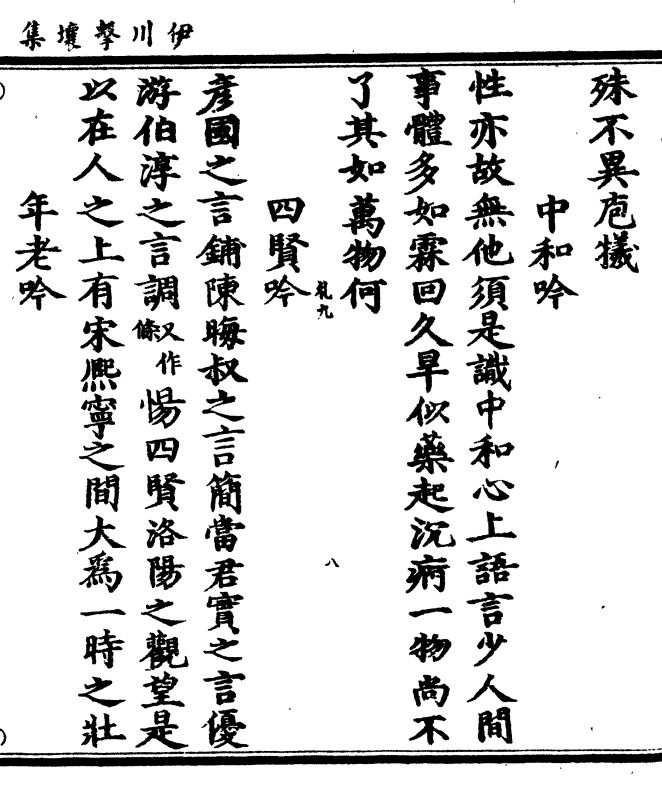 伊川擊壤集
殊不異庖犧
中和吟
性亦故無他須是識中和心上語言少人間
事體多如霖回久旱似藥起沉痾一物尚不
了其如萬物何
四賢吟
彥國之言鋪陳晦叔之言簡當君實之言優
游伯淳之言調又作條暢四賢洛陽之觀望是
以在人之上有宋熙寧之間大爲一時之壯
年老吟
八